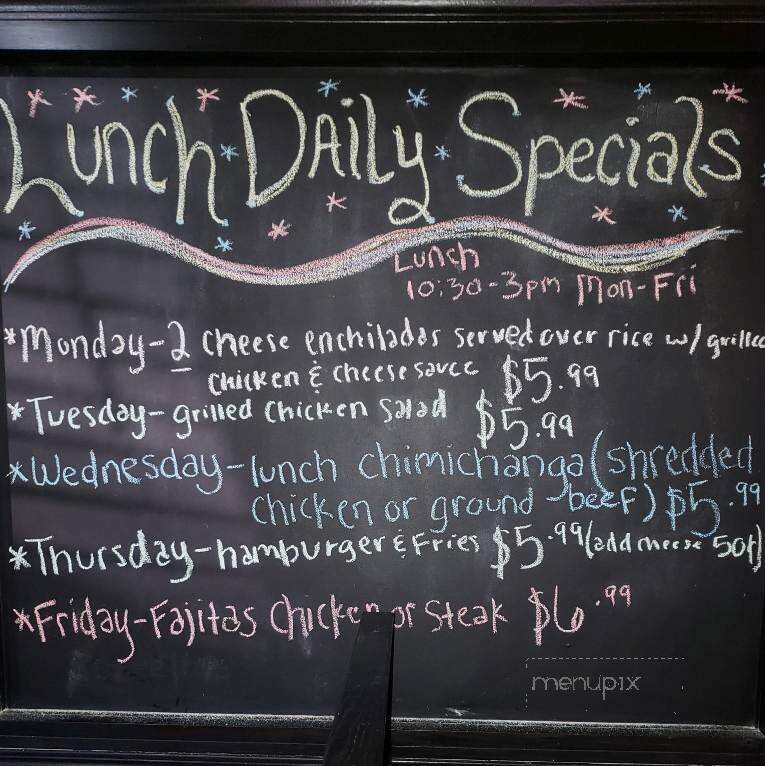 Lunch Daily Specials
Lunch
10:30-3pm Mon-Fri
*Monday-2 cheese enchiladas served over rice w/ grilled
chicken & cheese sauce $5.99
*Tuesday-grilled chicken salad $5.99
*Wednesday-lunch chimichanga (shredded
chicken or ground beef) $5.99
*Thursday-hamburger & Fries $5.99 (add cheese 50¢)
*Friday-Fajitas Chicken or Steak $6.99
menupix